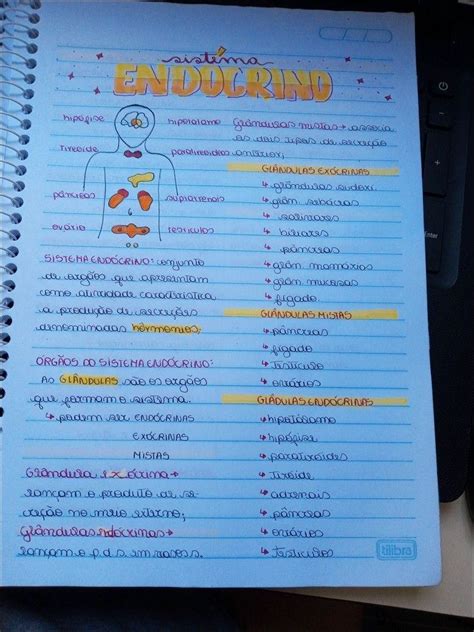 sistema
ENDÓCRINO
hipófise
hipotálamo
tireóide
paratireóides
pâncreas
suprarrenais
ovário
testículos
SISTEMA ENDÓCRINO: conjunto
de órgãos que apresentam
como atividade característica
a produção de secreções
denominadas hôrmonios;
ORGÃOS DO SISTEMA ENDÓCRINO:
As GLÂNDULAS são os orgãos
que formam o sistema.
↳ podem ser ENDÓCRINAS
EXÓCRINAS
MISTAS
Glândula exócrina→
lançam o produto de se-
creção no meio externo;
Glândulas endócrinas→
lançam o p.d.s. em vasos.
Glândulas mistas→ associa
os dois tipos de secreção
anterior;
GLÂNDULAS EXÓCRINAS
↳ glândulas sudori.
↳ glân. sebáceas
↳ salivares
↳ biliares
↳ pâncreas
↳ glân mamárias
↳ glân mucosas
↳ fígado
GLÂNDULAS MISTAS
↳ pâncreas
↳ fígado
↳ testículo
↳ ovários
GLÂDULAS ENDÓCRINAS
↳ hipotálamo
↳ hipófise
↳ paratireóides
↳ tireóide
↳ adrenais
↳ pâncreas
↳ ovários
↳ testículos
tilibra
Enter